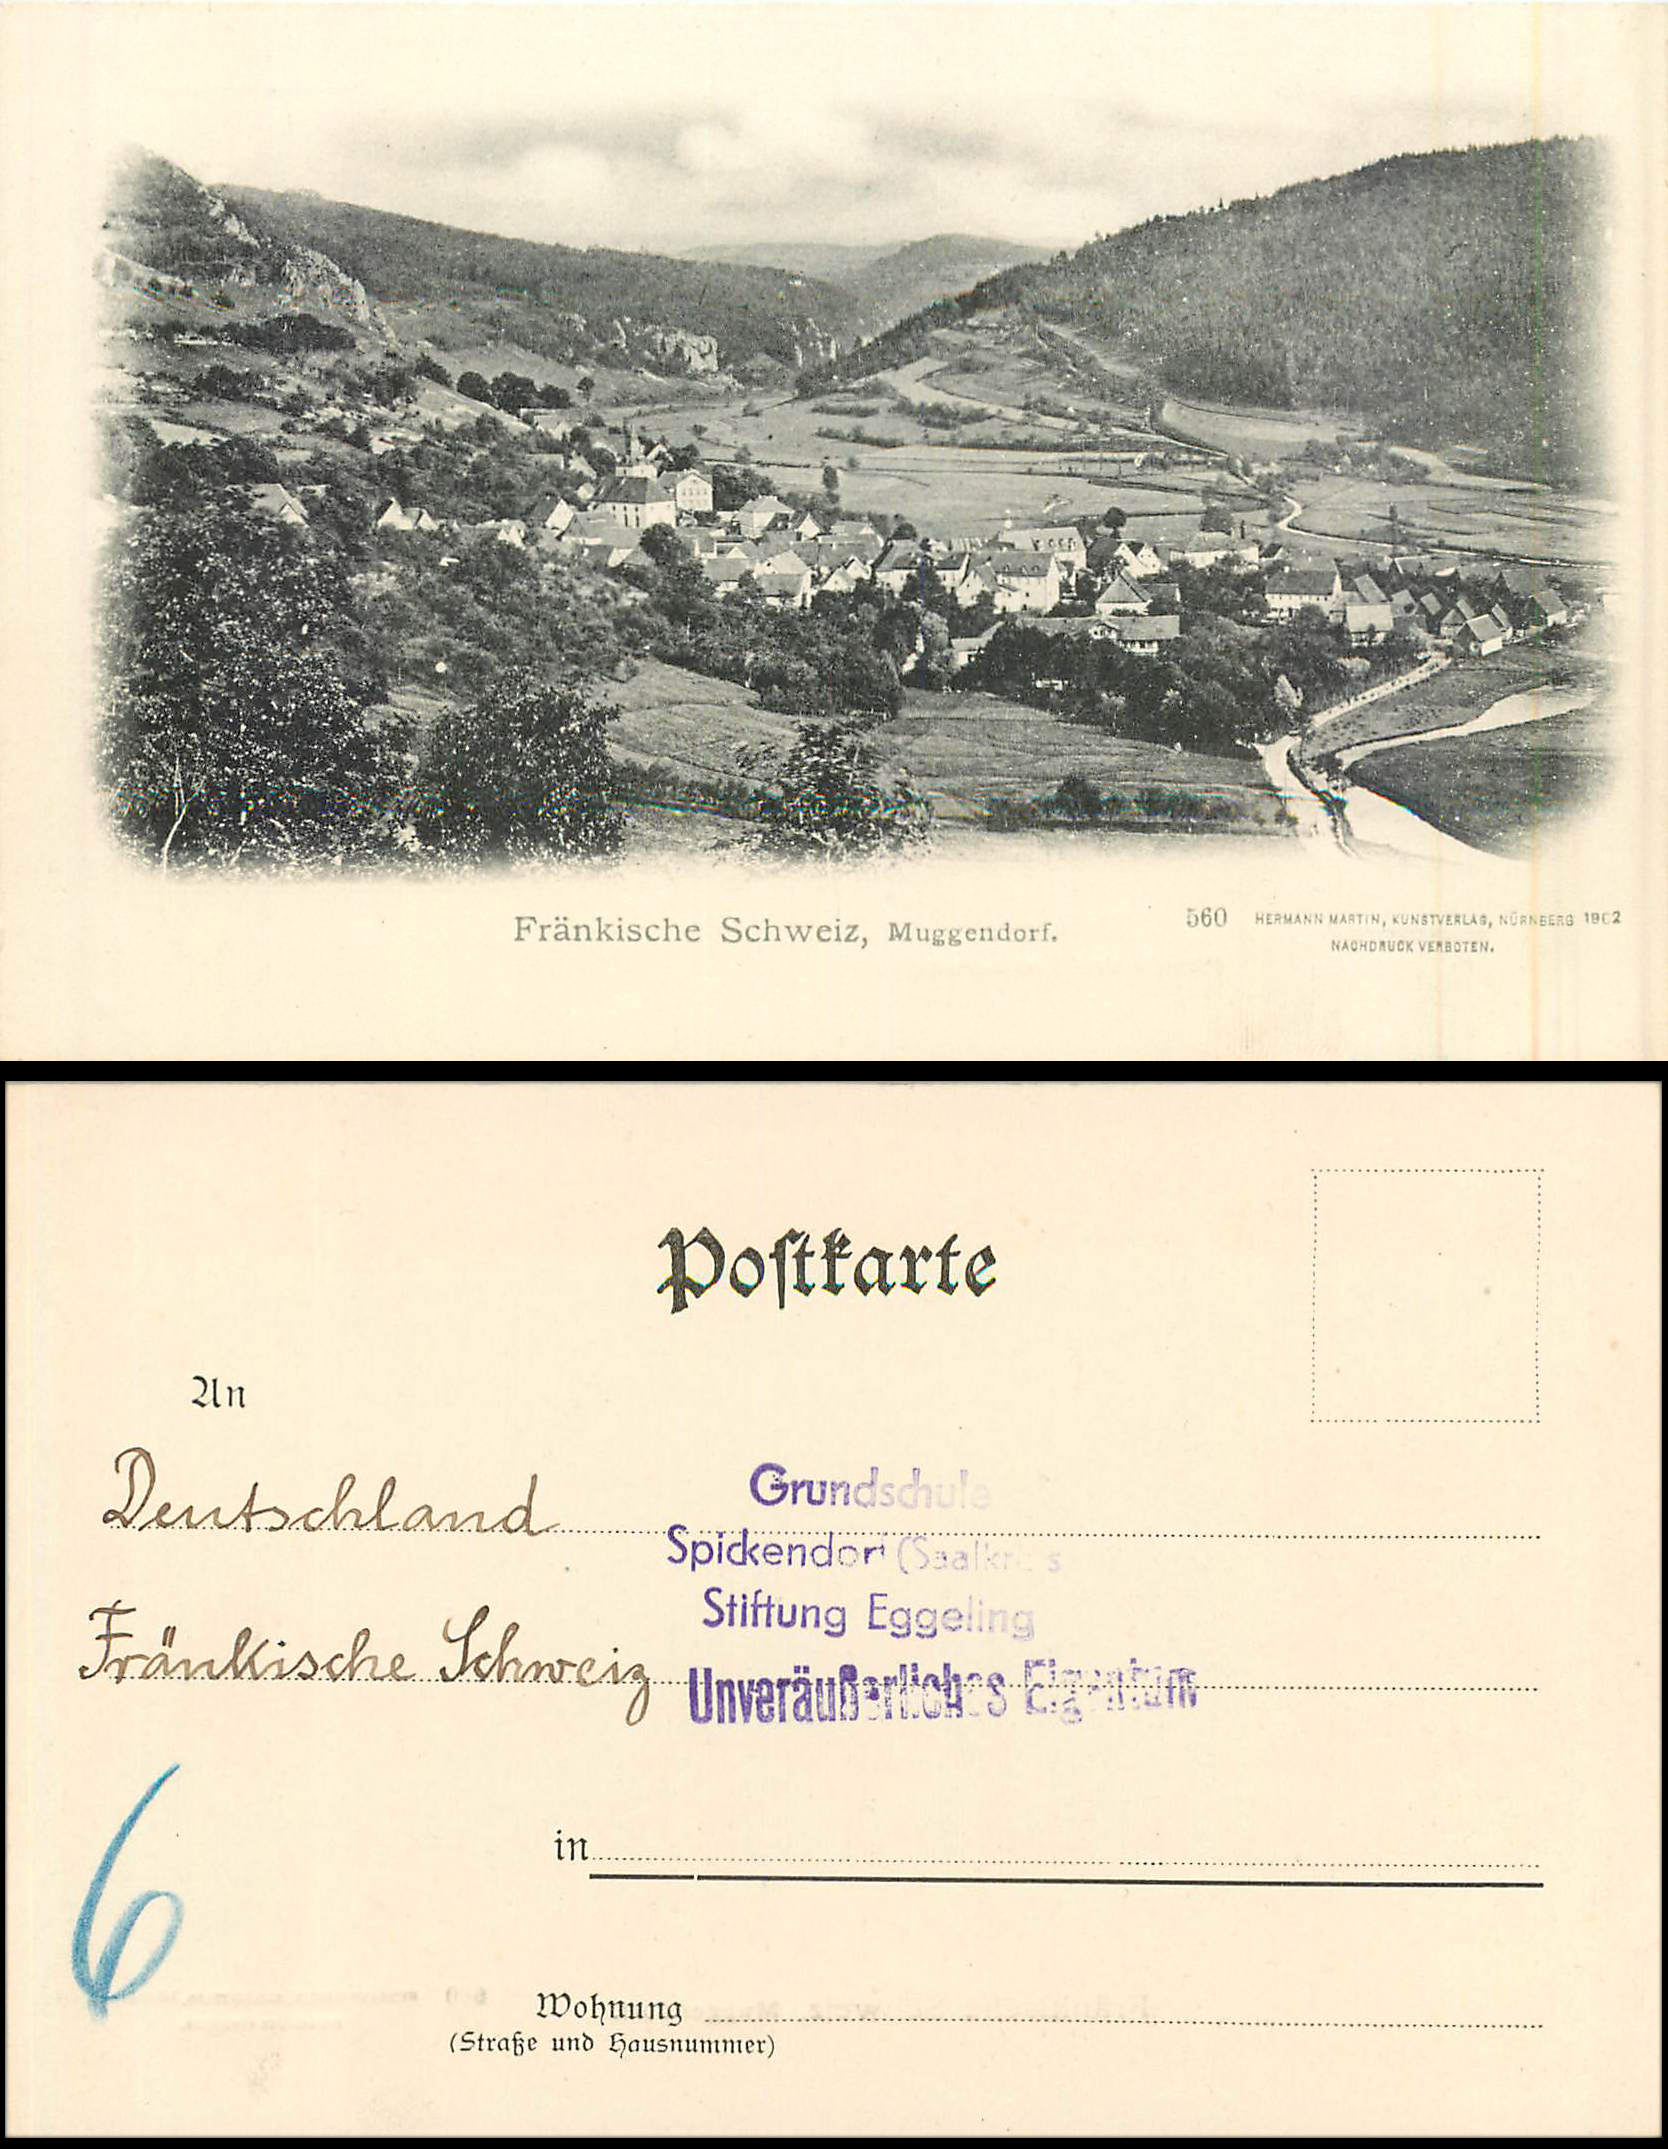 Fränkische Schweiz, Muggendorf.
560 HERMANN MARTIN, KUNSTVERLAG, NÜRNBERG 1902
NACHDRUCK VERBOTEN.
Postkarte
An
Deutschland
Fränkische Schweiz
Grundschule
Spickendorf (Saalkreis
Stiftung Eggeling
Unveräußerliches Eigentum
6
in
Wohnung
(Straße und Hausnummer)